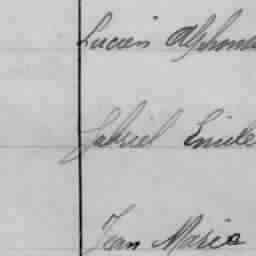 Lucien Alphonse
Gabriel Emile
Jean Marie